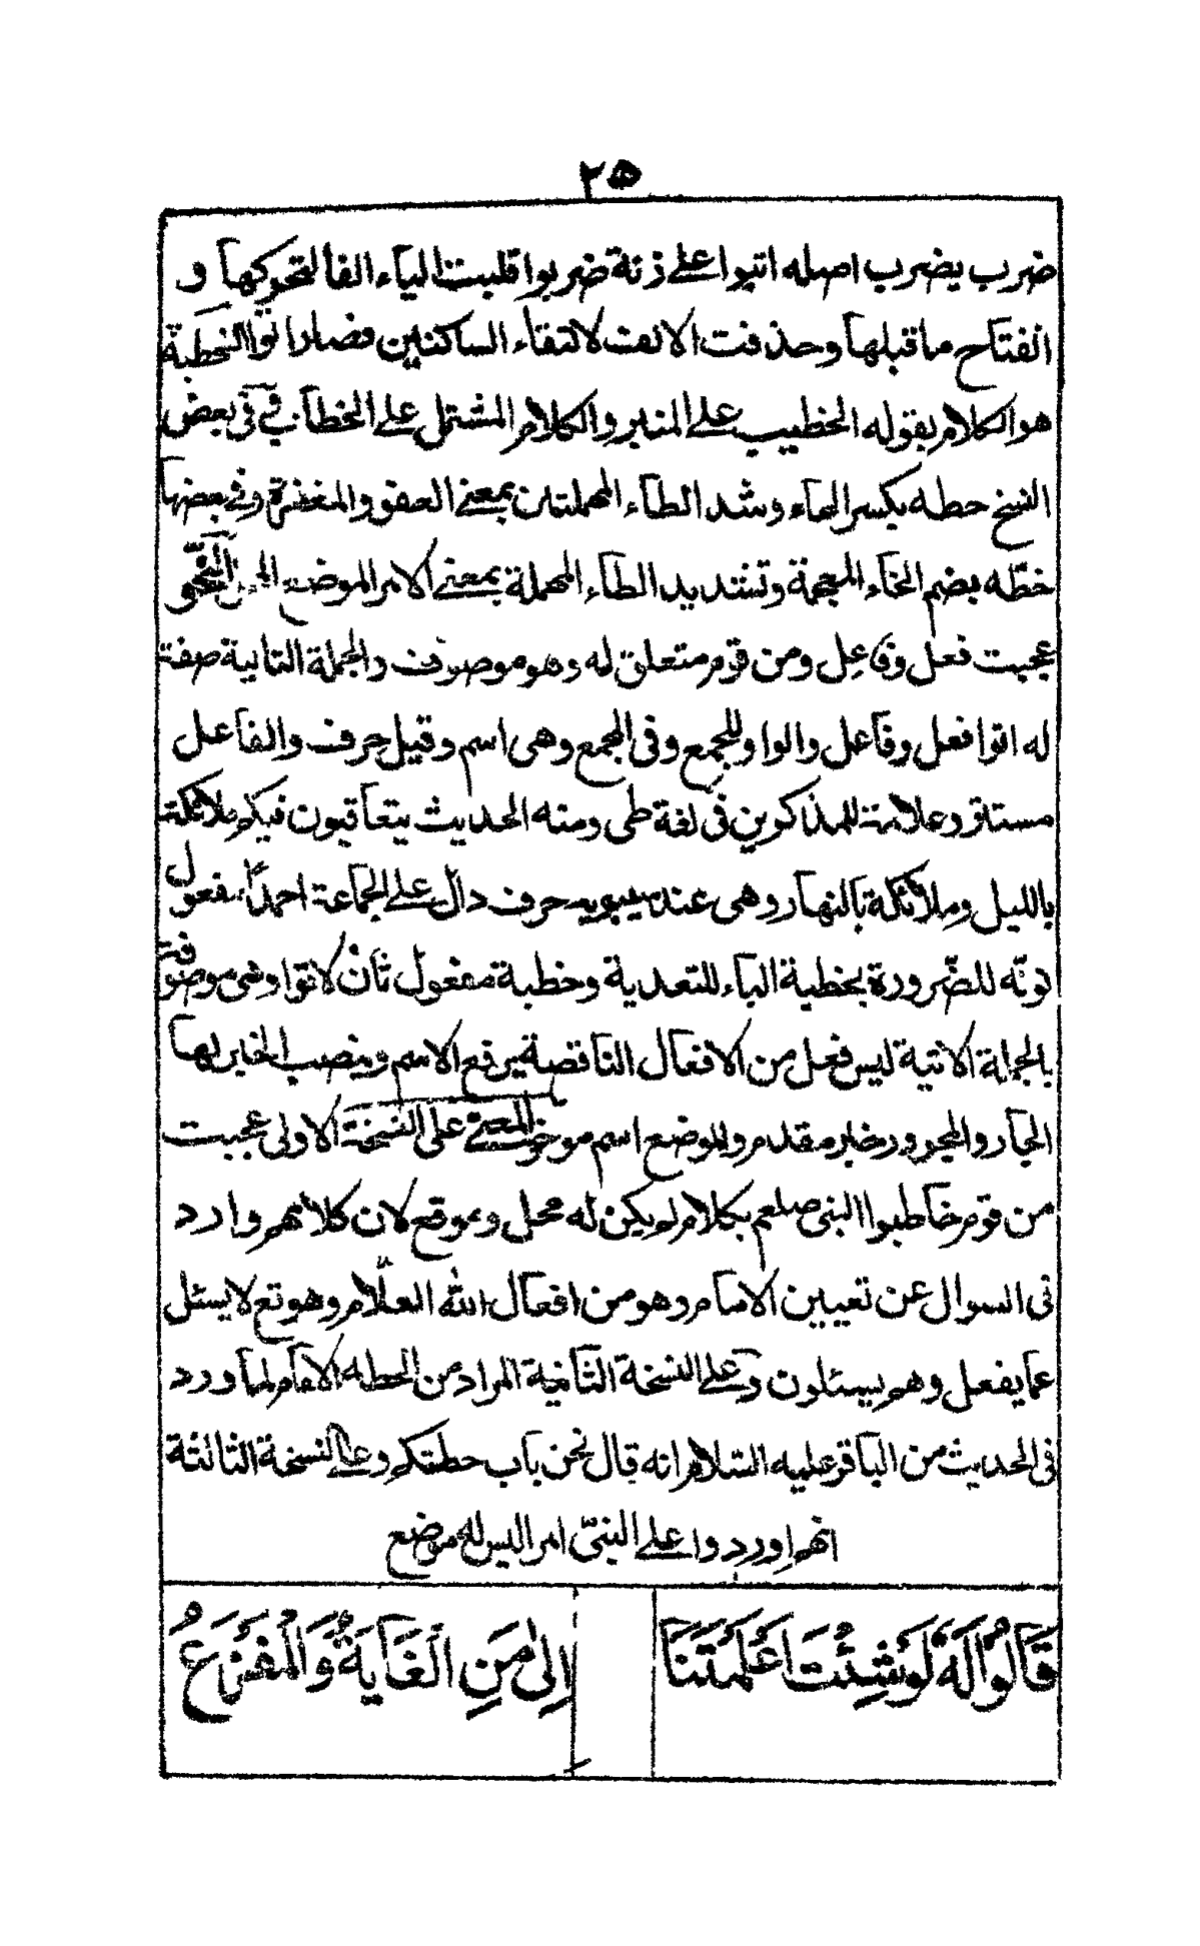 ٢٥
ضرب يضرب اصله اتيوا على زنة ضربوا قلبت الياء الفا لتحركها و
انفتاح ما قبلها وحذفت الالف لالتقاء الساكنين فصار اتوا الخطبة
هو الكلام يقوله الخطيب على المنبر والكلام المشتمل على الخطاب في في بعض
النسخ حطه بكسر الحاء وشد الطاء المهملتين بمعنى العفو والمغفرة وفي بعضها
خطّه بضم الخاء المعجمة وتشديد الطاء المهملة بمعنى الامر الموضع النحو
عجبت فعل وفاعل ومن قوم متعلق له وهو موصوف والجملة التالية صفة
له اتوا فعل وفاعل والواو للجمع وفى المجمع وهى اسم وقيل حرف والفاعل
مستتر وعلامة للمذكورين فى لغة طى ومنه الحديث يتعاقبون فيكم ملائكة
بالليل وملائكة بالنهار وهى عند سيبويه حرف دالّ على الجماعة احمدا مفعول
نوّنه للضّرورة بخطبة الباء للتعدية وخطبة مفعول ثان لاتوا وهى موصوفة
بالجملة الاتية ليس فعل من الافعال الناقصة يرفع الاسم وينصب الخبر لها
الجار والمجرور خبر مقدم وموضع اسم موخر المعنى على النسخة الاولى عجبت
من قوم خاطبوا النبى صلعم بكلام لم يكن له محل وموقع لان كلامهم وارد
فى السوال عن تعيين الامام وهو من افعال الله العلّام وهو تع لا يسئل
عما يفعل وهم يسئلون وعلى النسخة الثانية المراد من الحطه الامام لما ورد
فى الحديث من الباقر عليه السّلام انه قال نحن باب حطتكم وعلى النسخة الثالثة
انهم اوردوا على النبىّ امرا ليس له موضع
قَالُوا لَهُ لَوْ شِئْتَ اَعْلَمْتَنَا
اِلىٰ مَنِ الْغَايَةُ وَالْمَفْزَعُ